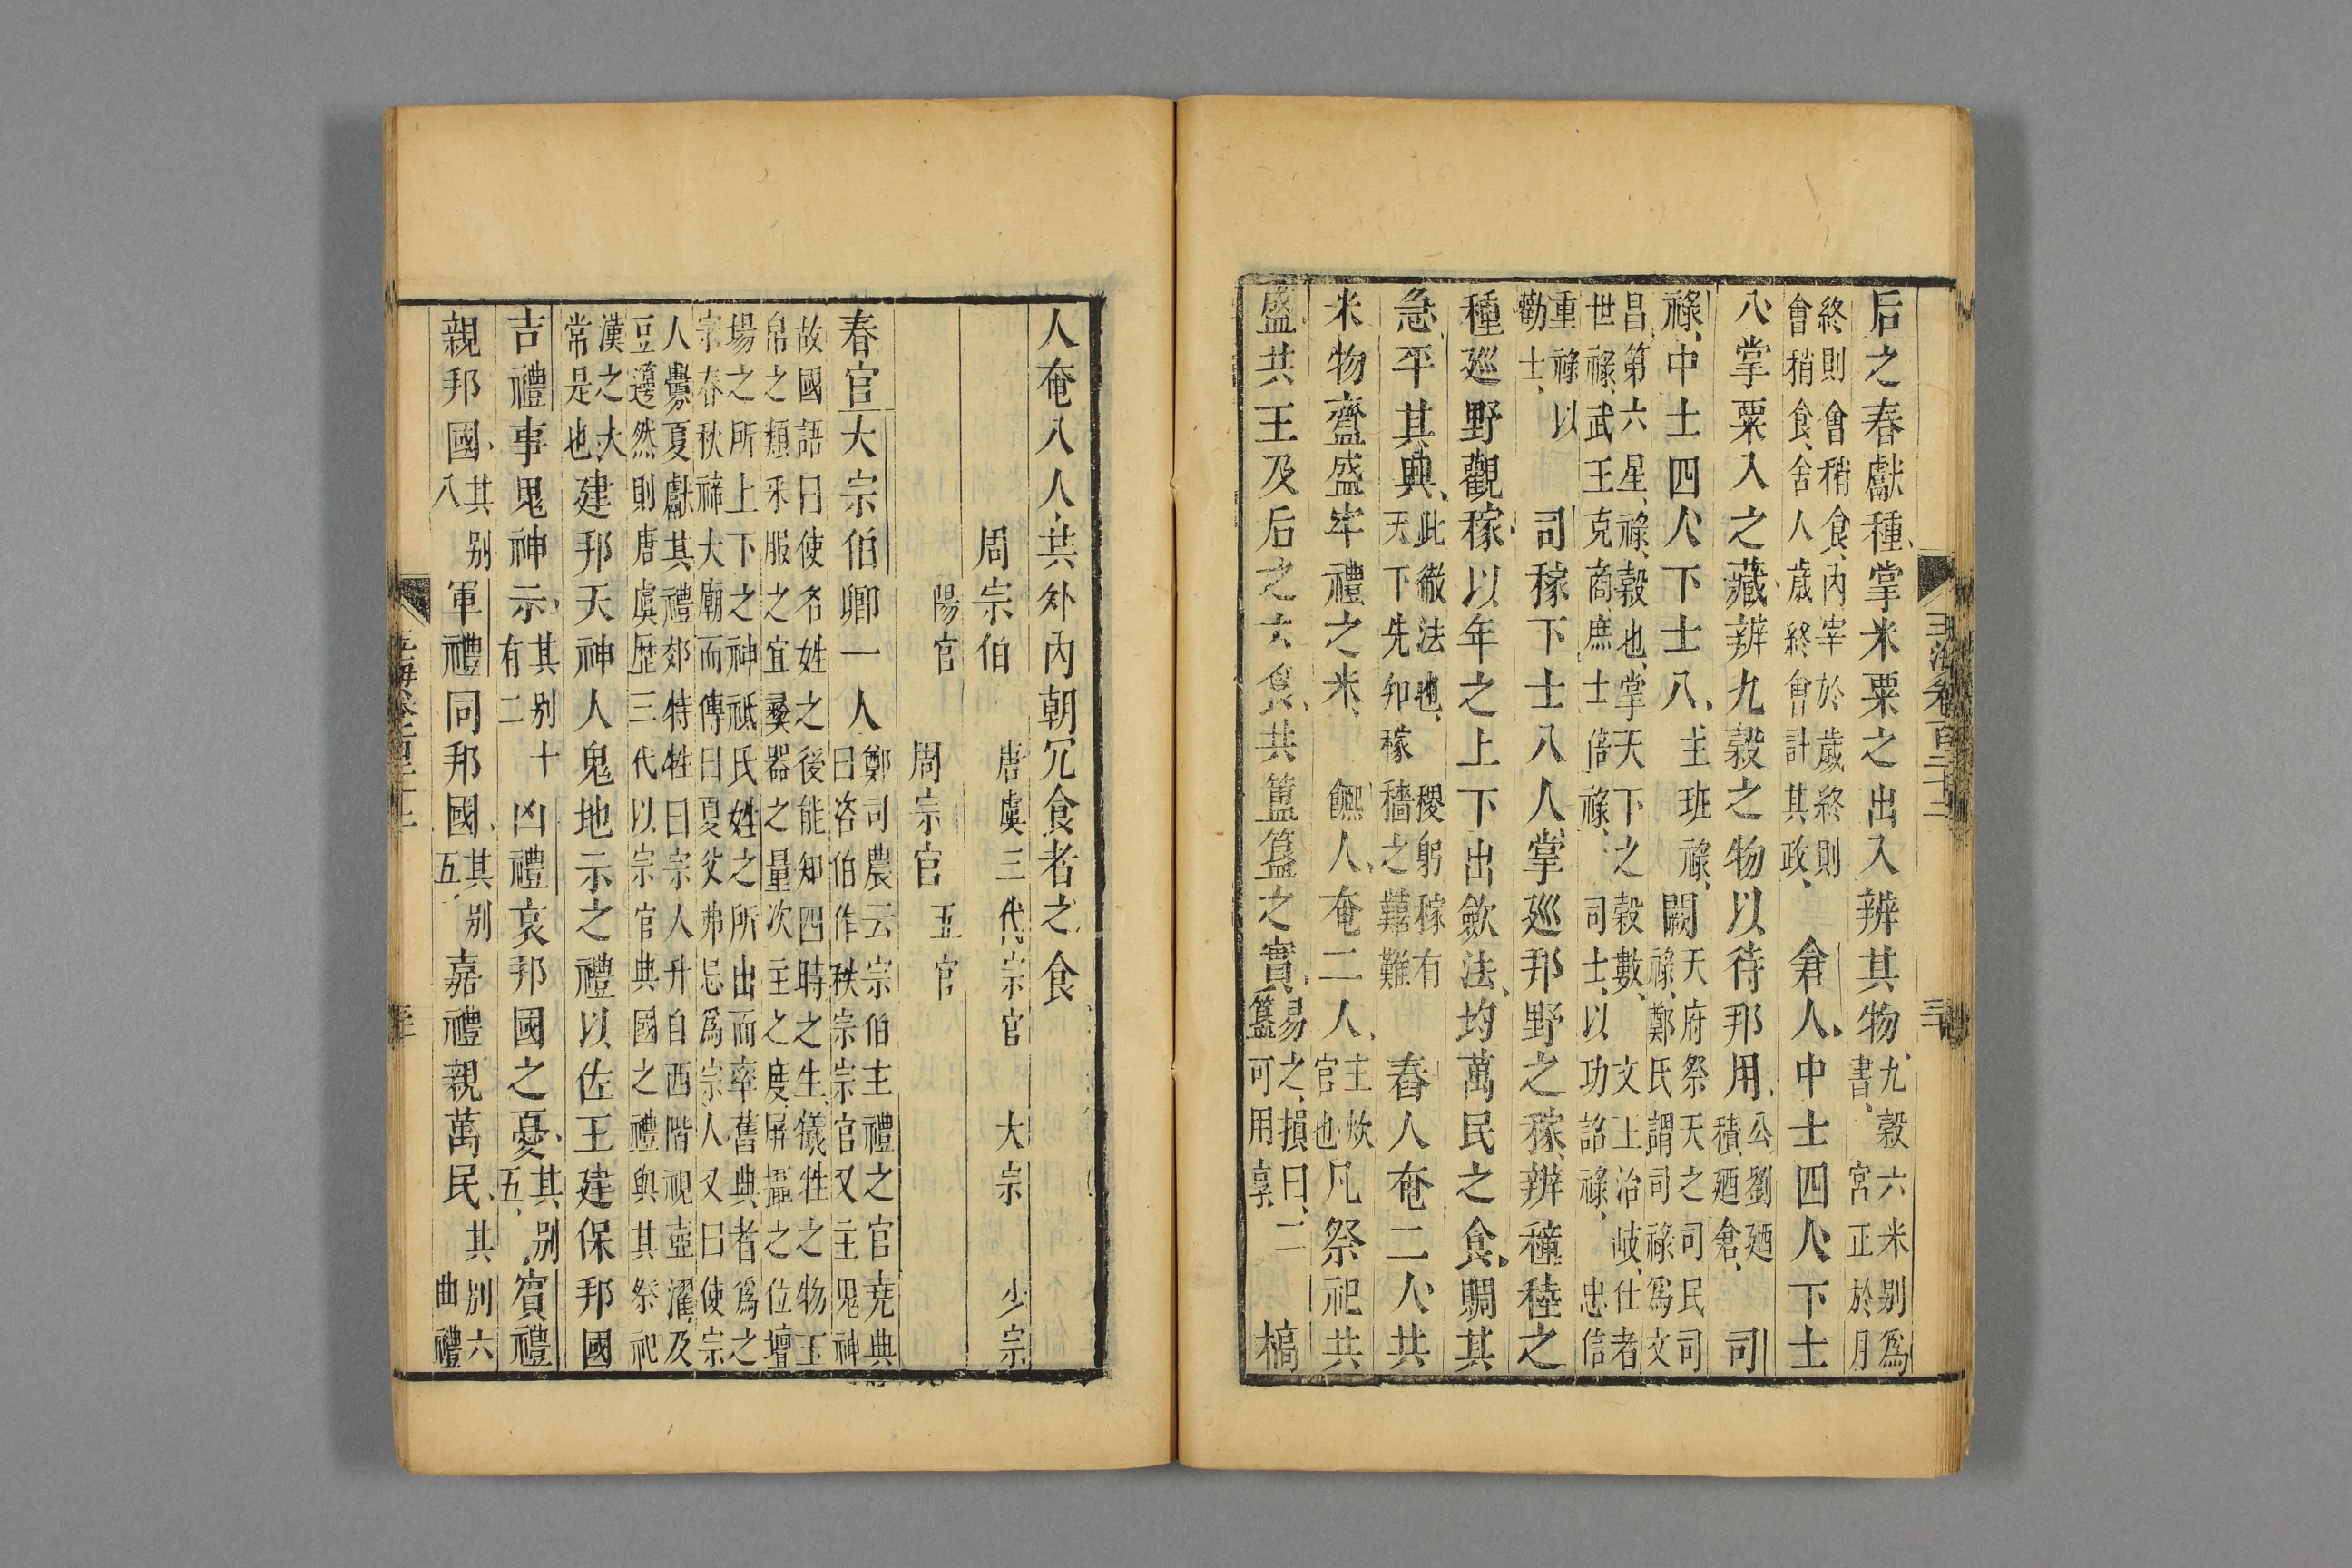 后之春獻種掌米粟之出入辨其物九穀六米别爲書宮正於月
終則會稍食内宰於歲終則會稍食舍人歲終會計其政倉人中士四人下士
八掌粟入之藏辨九穀之物以待邦用公劉廼積廼倉司
祿中士四人下士八主班祿闕天府祭天之司民司祿鄭氏謂司祿爲文
昌第六星祿穀也掌天下之穀數文王治岐仕者世祿武王克商庶士倍祿司士以功詔祿忠信
重祿以勸士司稼下士八人掌巡邦野之稼辨穜稑之
種巡野觀稼以年之上下出斂法均萬民之食賙其
急平其興此徹法也稷躬稼有天下先知稼穡之艱難舂人奄二人共
米物齍盛牢禮之米饎人奄二人主炊官也凡祭祀共
盛共王及后之六食共簠簋之實易之損曰二簋可用享槁
人奄八人共外内朝冗食者之食
周宗伯 唐虞三代宗官 大宗 少宗
陽官 周宗官 五官
春官大宗伯卿一人鄭司農云宗伯主禮之官堯典曰咨伯作秩宗宗官又主鬼神
故國語曰使名姓之後能知四時之生犧牲之物玉帛之類采服之宜彝器之量次主之度屏攝之位壇
場之所上下之神祗氏姓之所出而率舊典者爲之宗春秋禘大廟而傳曰夏父弗忌爲宗人又曰使宗
人釁夏獻其禮郊特牲曰宗人升自西階視壺濯及豆籩然則唐虞歷三代以宗官典國之禮與其祭祀
漢之大常是也建邦天神人鬼地示之禮以佐王建保邦國
吉禮事鬼神示其别十有二凶禮哀邦國之憂其别五賓禮
親邦國其别八軍禮同邦國其别五嘉禮親萬民其别六曲禮